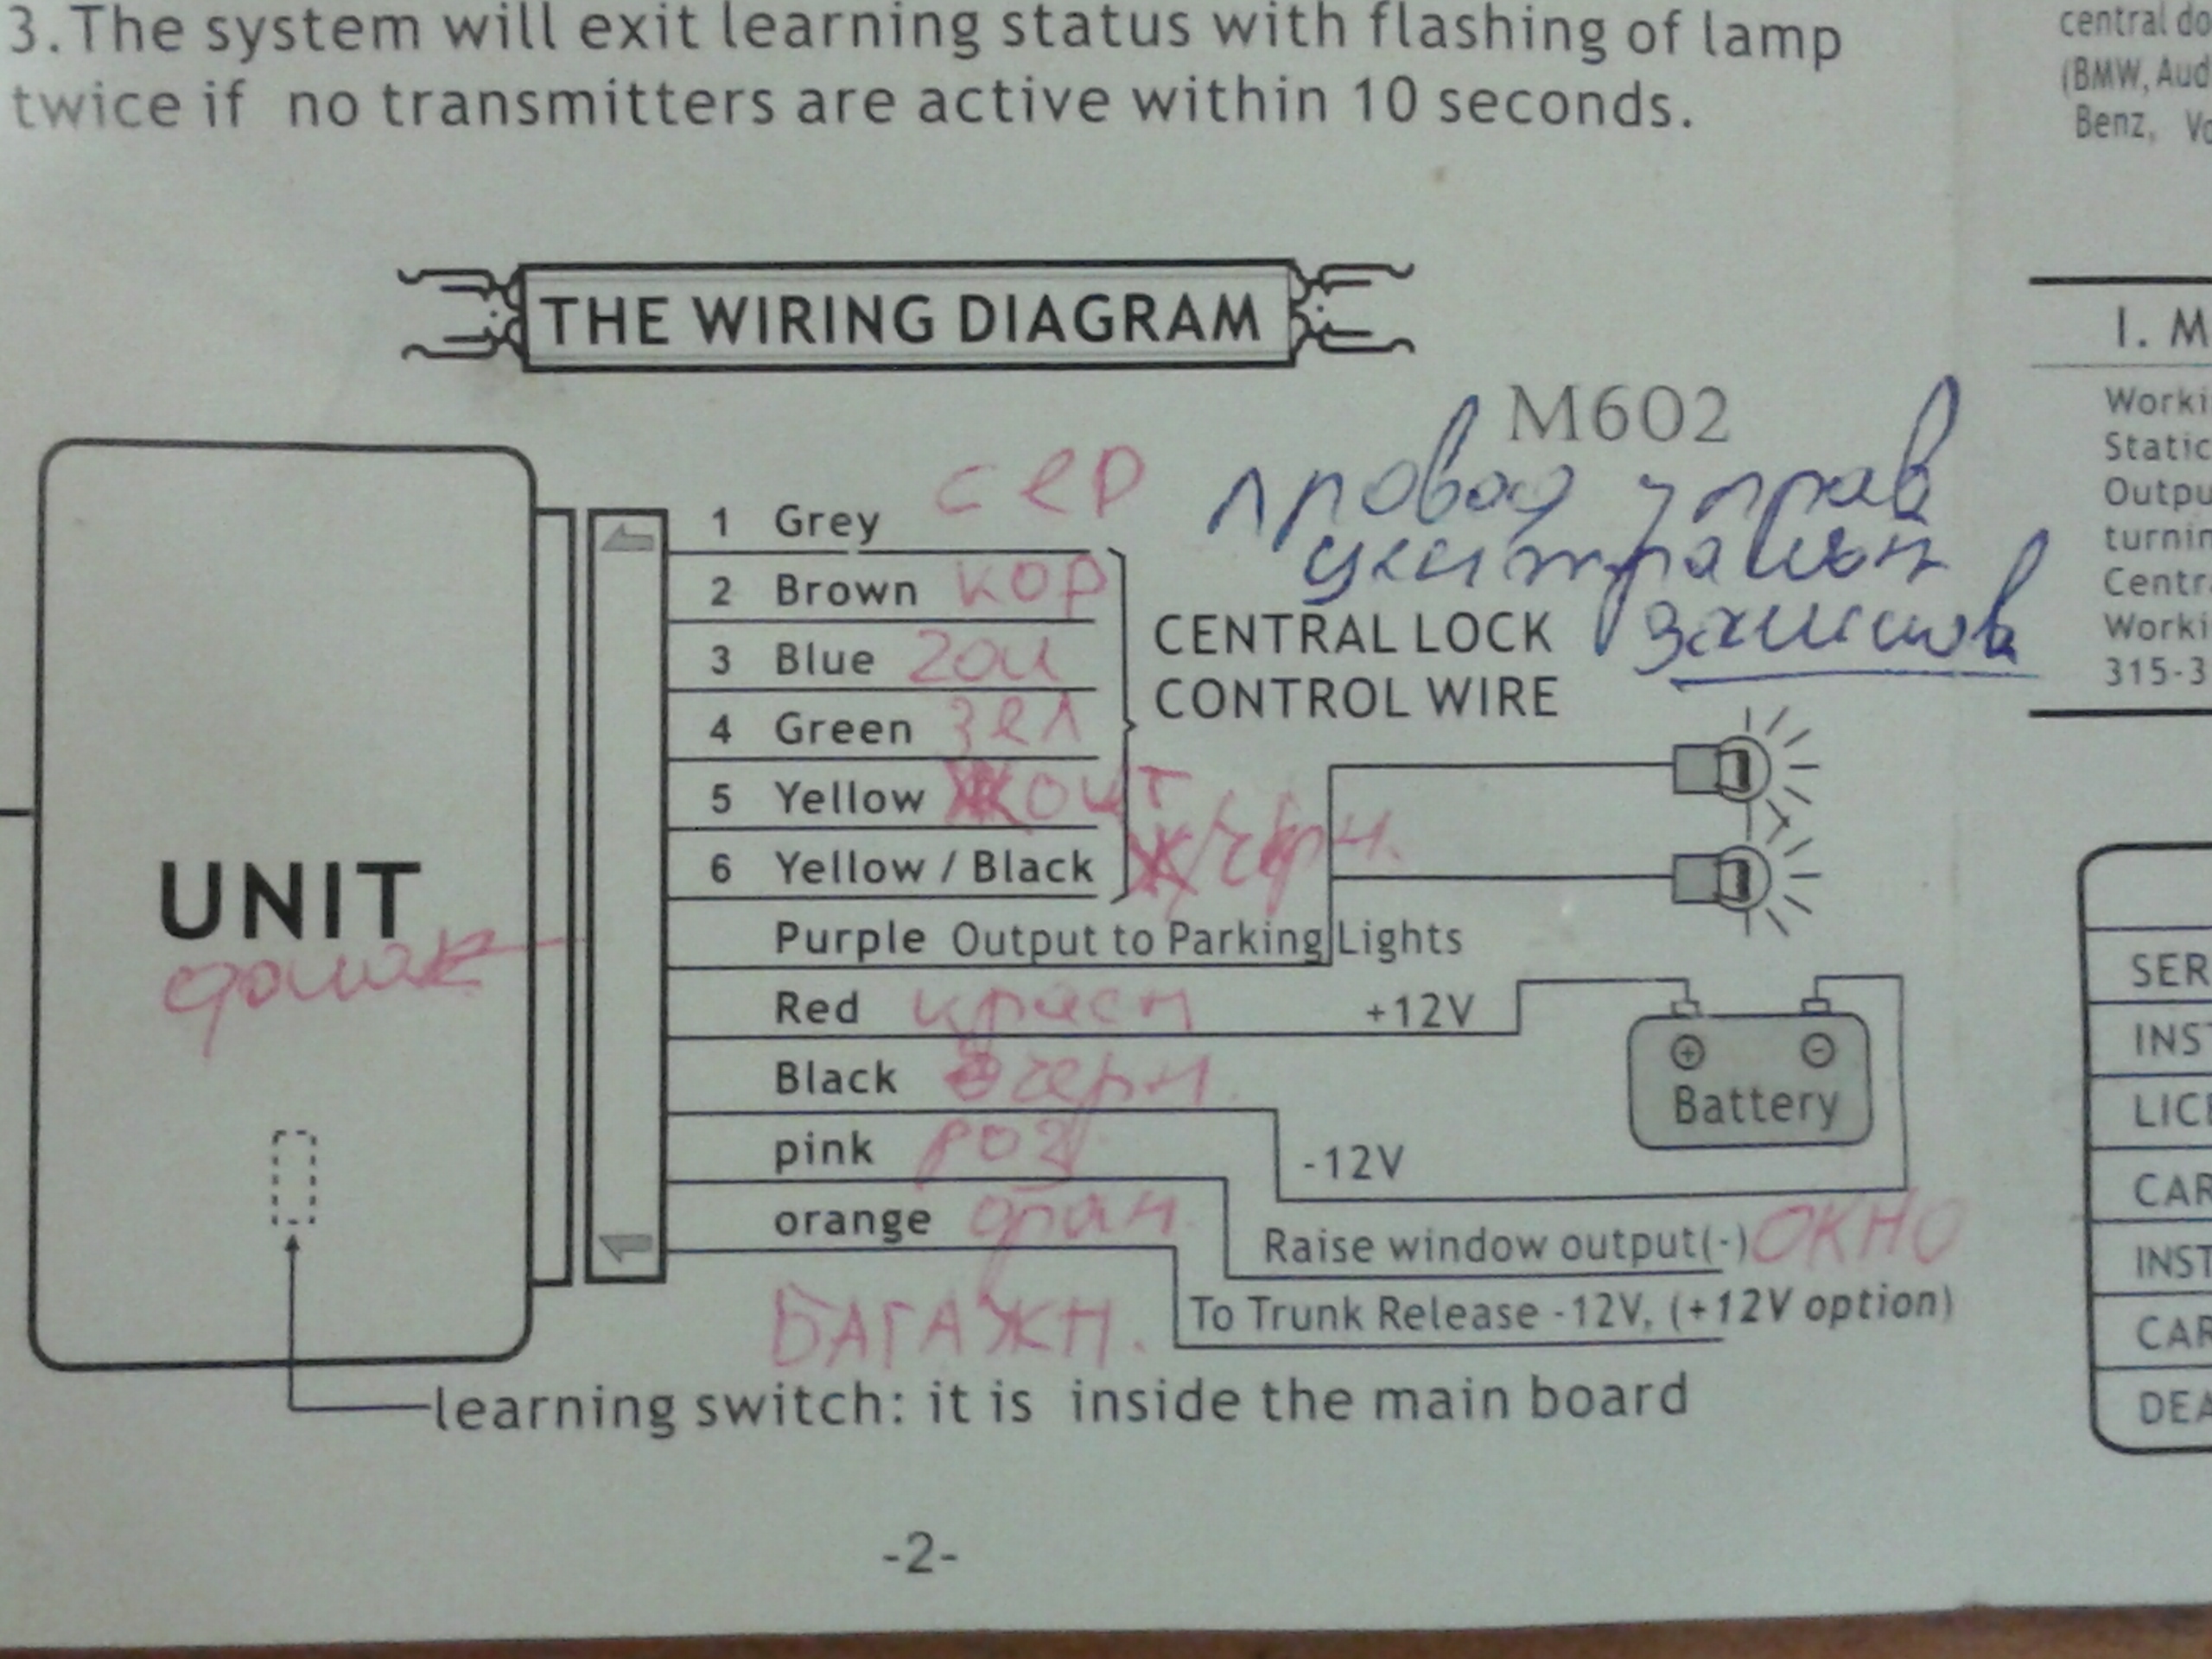 3.The system will exit learning status with flashing of lamp
twice if no transmitters are active within 10 seconds.
THE WIRING DIAGRAM
M602
провод управ
центральн
замков
1 Grey сер
2 Brown кор
3 Blue гол
4 Green зел
5 Yellow жолт
6 Yellow / Black ж/черн.
CENTRAL LOCK
CONTROL WIRE
Purple Output to Parking Lights
Red красн +12V
Black черн.
pink роз
-12V
orange оран
Raise window output(-) ОКНО
To Trunk Release -12V, (+12V option)
БАГАЖН.
UNIT
+ -
Battery
learning switch: it is inside the main board
-2-
central do
(BMW, Aud
Benz, Vo
I. M
Worki
Static
Outpu
turnin
Centra
Worki
315-3
SER
INST
LICE
CAR
INST
CAR
DEA